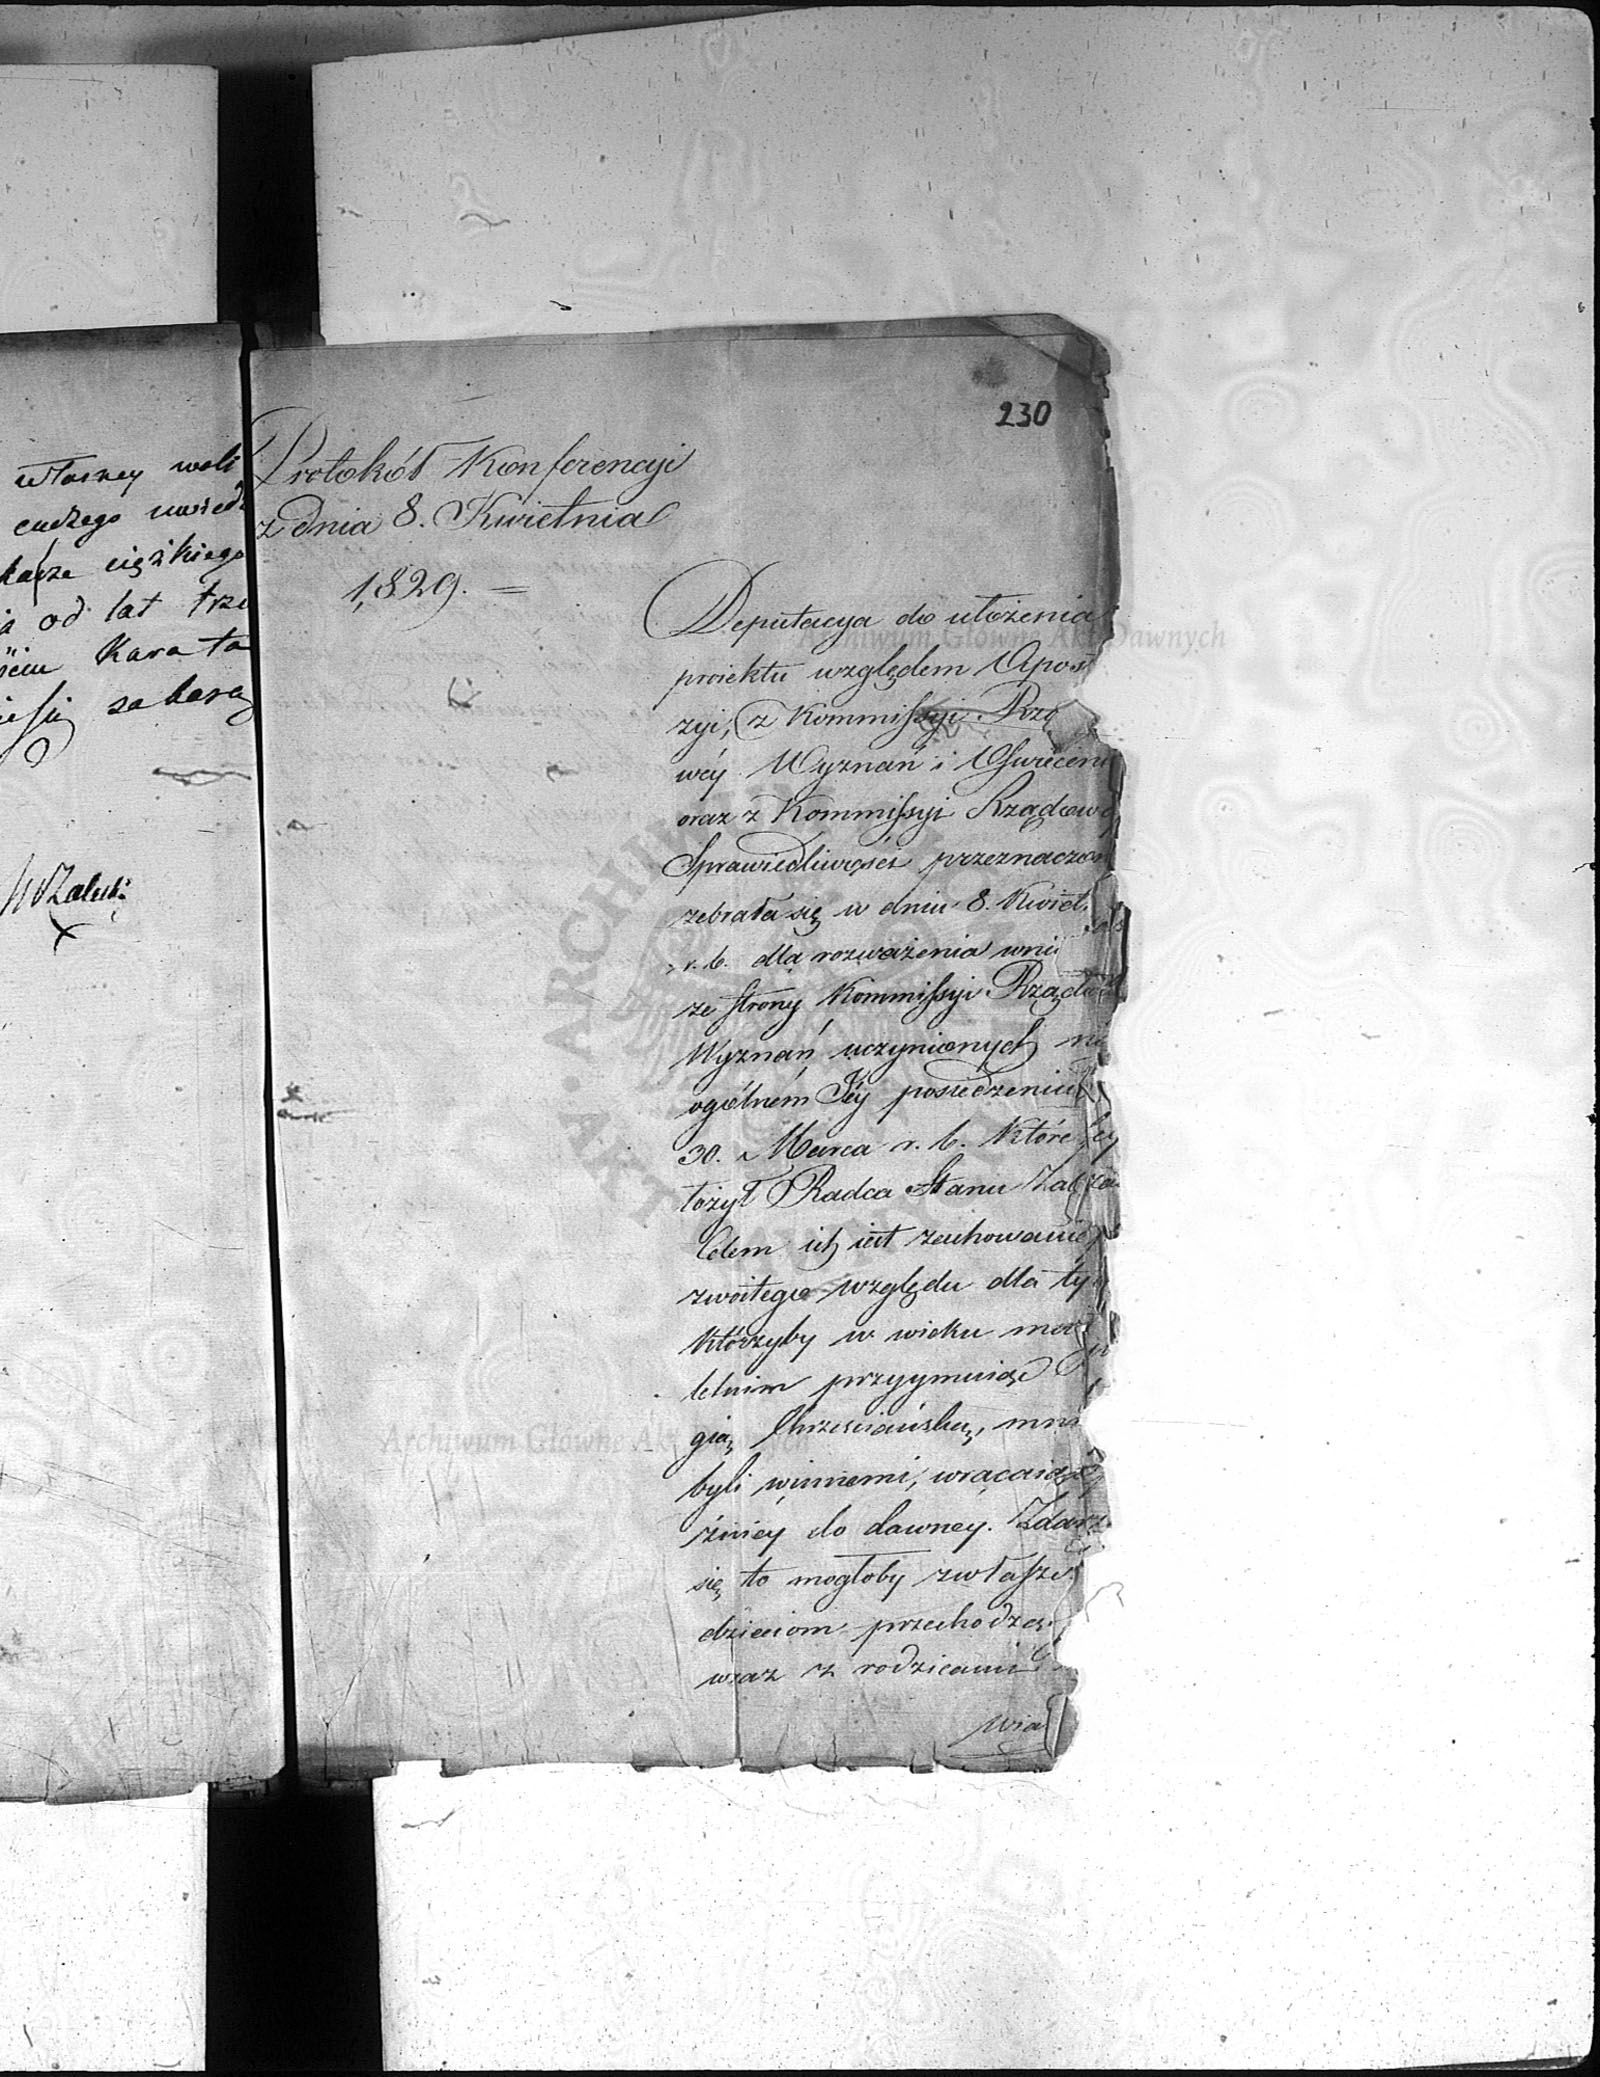 własney woli
cudzego
cięzkiego
od lat trze
Kara ta
230
Protokół Konferencyi
z dnia 8. Kwietnia
1829. =
Deputacya do ułożenia
proiektu względem Apost
zyi, z Kommissyi Rzą
wéy Wyznań i Oświeceni
oraz z Kommissyi Rządowé
Sprawiedliwości przeznaczon
zebrała się w dniu 8. Kwiet.
r. b. dla rozważenia wni
ze strony Kommissyi Rządow
Wyznań uczynionych na
ogólném Jéy posiedzeniu
30. Marca r. b. które
łożył Radca Stanu
Celem ich iest zachowanie
zwoitego względu dla ty
którzyby w wieku mał
letnim przyymuiąc
gią Chrześciańską, mni
byli winnemi, wracaiąc
źniéy do dawnéy. Zdarz
się to mogłoby zwłaszc
dzieciom przechodzą
wraz z rodzicami
wia
Archiwum Główne Akt Dawnych
Archiwum Główne Akt Dawnych